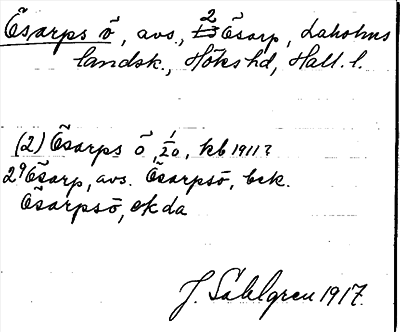 Ösarps ö, avs., 2 Ösarp, Laholms
landsk., Hökshd, Hall. l.
(2) Ösarps ö, 1/20, kb 1911?
2⁹ Ösarp, avs. Ösarpsö, bek.
Ösarpsö, ekda
J. Sahlgren 1917.